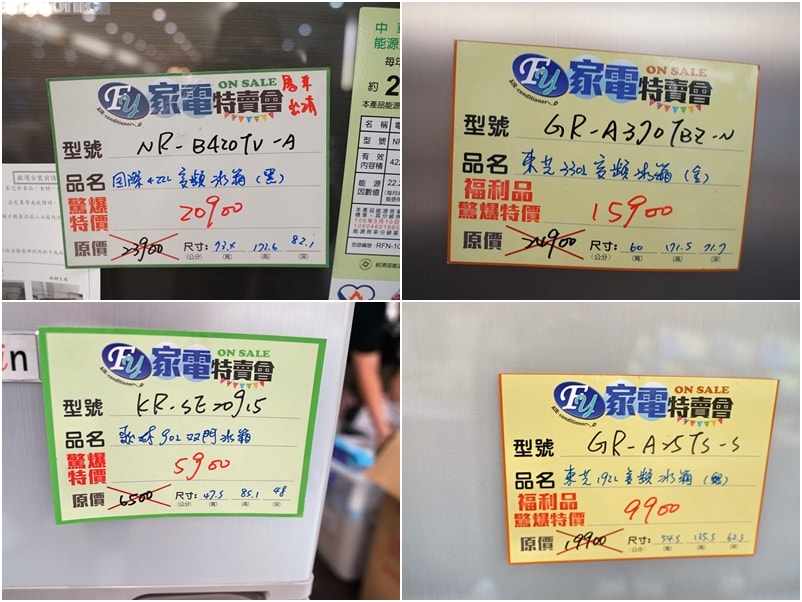 FY 家電特賣會
ON SALE
Air-conditioner
型號 NR-B420TV-A
品名 國際422L變頻冰箱(黑)
驚爆特價 20900
原價 23900 尺寸: 73.8 171.6 82.1
(公分) (寬) (高) (深)
能源
約2
名稱
型號 NR
有效內容積 42
能源因數值 22.2
FY 家電特賣會
ON SALE
Air-conditioner
型號 GR-A370TBZ-N
品名 東芝330L變頻冰箱(金)
福利品
驚爆特價 15900
原價 24900 尺寸: 60 171.5 71.7
(公分) (寬) (高) (深)
in
FY 家電特賣會
ON SALE
Air-conditioner
型號 KR-SE20915
品名 歌林90L双門冰箱
驚爆特價 5900
原價 6500 尺寸: 47.5 85.1 48
(公分) (寬) (高) (深)
FY 家電特賣會
ON SALE
Air-conditioner
型號 GR-A25TS-S
品名 東芝192L變頻冰箱(銀)
福利品
驚爆特價 9900
原價 19900 尺寸: 54.5 135.5 62.3
(公分) (寬) (高) (深)